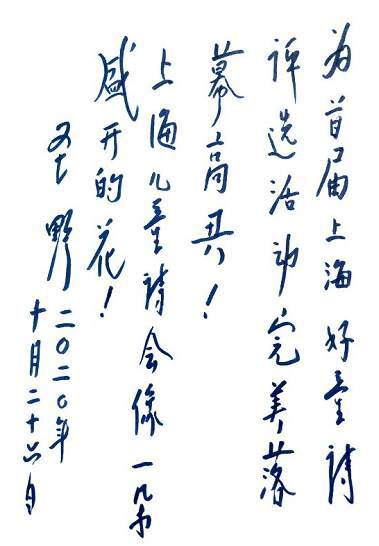 为首届上海好童诗
评选活动完美落
幕高兴！
上海儿童诗会像一朵
盛开的花！
圣野
二〇二〇年
十月二十六日